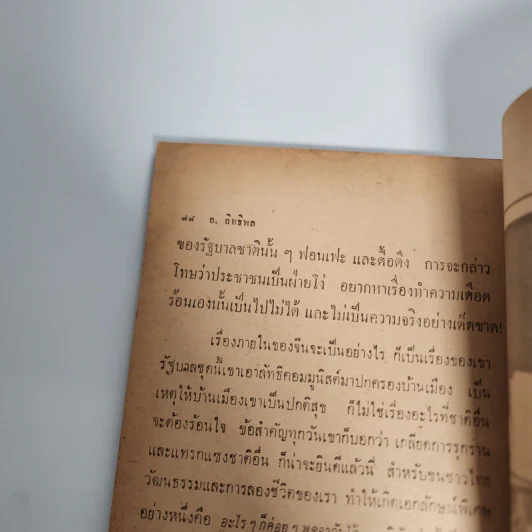 ๗๘ อ. อิทธิพล
ของรัฐบาลชาตินั้น ๆ ฟอนเฟะ และดื้อดึง การจะกล่าว
โทษว่าประชาชนเป็นฝ่ายโง่ อยากหาเรื่องทำความเดือด
ร้อนเองนั้นเป็นไปไม่ได้ และไม่เป็นความจริงอย่างเด็ดขาด!
เรื่องภายในของจีนจะเป็นอย่างไร ก็เป็นเรื่องของเขา
รัฐบาลชุดนี้เขาเอาลัทธิคอมมูนิสต์มาปกครองบ้านเมือง เป็น
เหตุให้บ้านเมืองเขาเป็นปกติสุข ก็ไม่ใช่เรื่องอะไรที่ชาติอื่น
จะต้องร้อนใจ ข้อสำคัญทุกวันเขาก็บอกว่า เกลียดการรุกราน
และแทรกแซงชาติอื่น ก็น่าจะยินดีแล้วนี่ สำหรับชนชาวไทย
วัฒนธรรมและการลองชีวิตของเรา ทำให้เกิดเอกลักษณ์พิเศษ
อย่างหนึ่งคือ อะไร ๆ ก็ค่อย ๆ